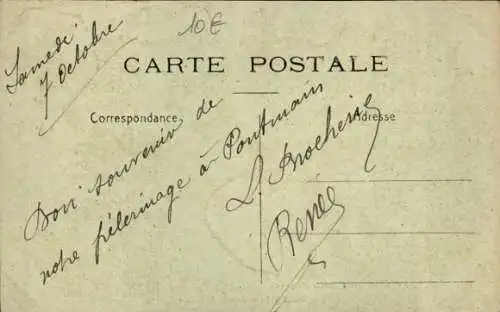 Samedi
7 Octobre
10€
CARTE POSTALE
Correspondance
Adresse
Bon souvenir de
notre pélerinage à Pontmain
L. Brocherie
Renée